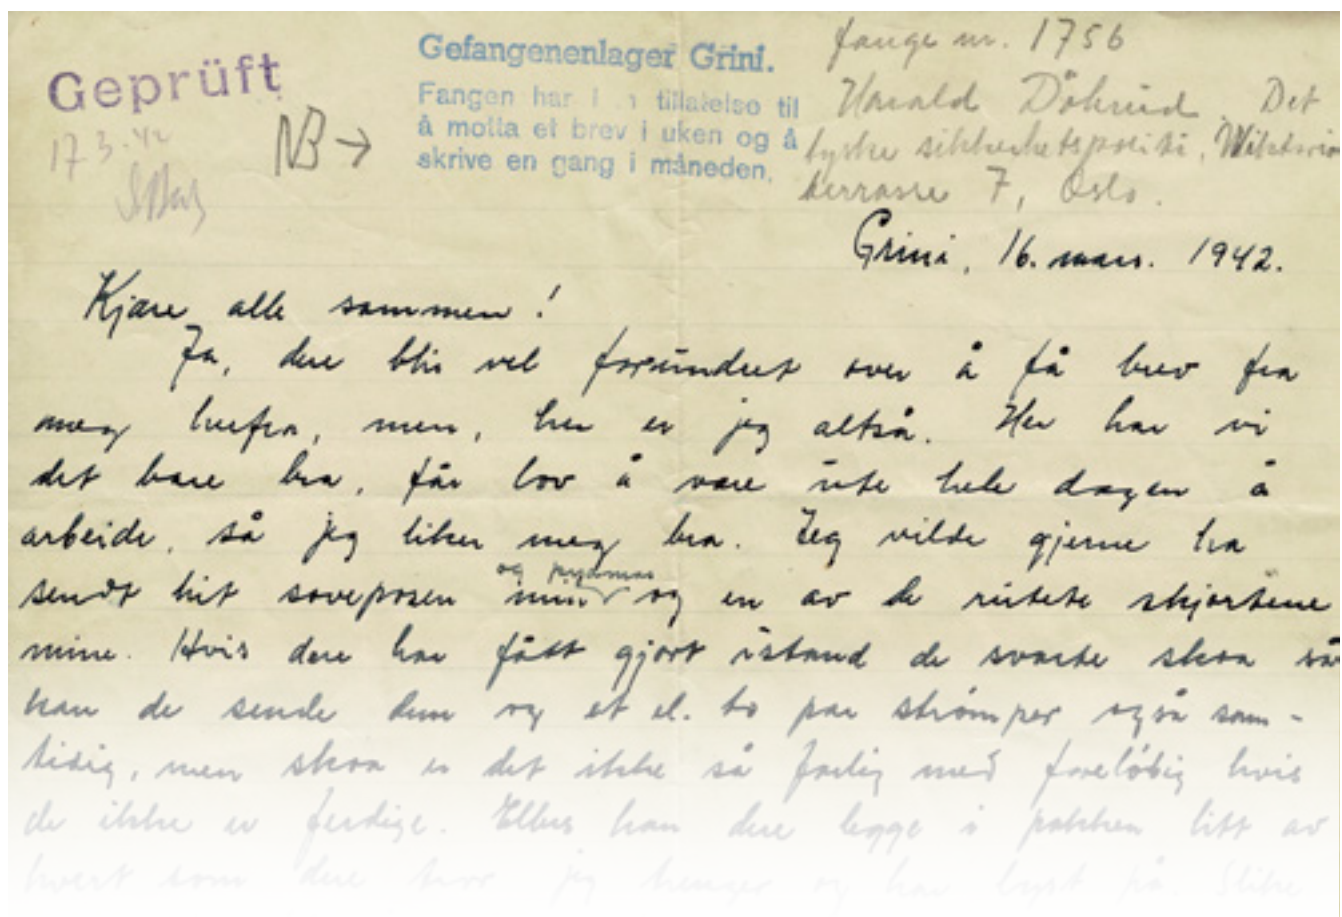 Geprüft
17 3. 42
NB →
Gefangenenlager Grini.
Fangen har tillatelse til
å motta et brev i uken og å
skrive en gang i måneden.
fange nr. 1756
Harald Døhrud Det
tyske sikkerhetspoliti, Wiktoria
terrasse 7, Oslo.
Grini, 16. mars. 1942.
Kjære alle sammen!
Ja, dere blir vel forundret over å få brev fra
meg herfra, men, her er jeg altså. Her har vi
det bare bra, får lov å være ute hele dagen å
arbeide, så jeg liker meg bra. Jeg vilde gjerne ha
og pyamas
sendt hit soveposen min og en av de rutete skjortene
mine. Hvis dere har fått gjort istand de svarte skoa så
kan de sende dem og et el. to par strømper også sam-
tidig, men skoa er det ikke så farlig med foreløbig hvis
de ikke er ferdige. Ellers kan dere legge i pakken litt av
hvert som dere tror jeg trenger og har lyst på. Slike